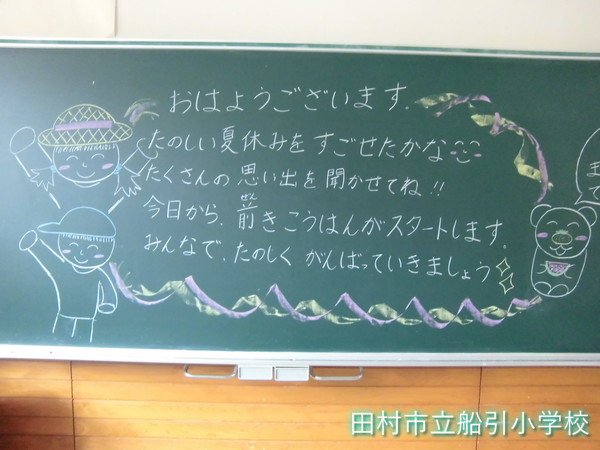 おはようございます。
たのしい夏休みをすごせたかな
たくさんの思い出を聞かせてね!!
今日から、前きこうはんがスタートします。
みんなで、たのしくがんばっていきましょう
田村市立船引小学校